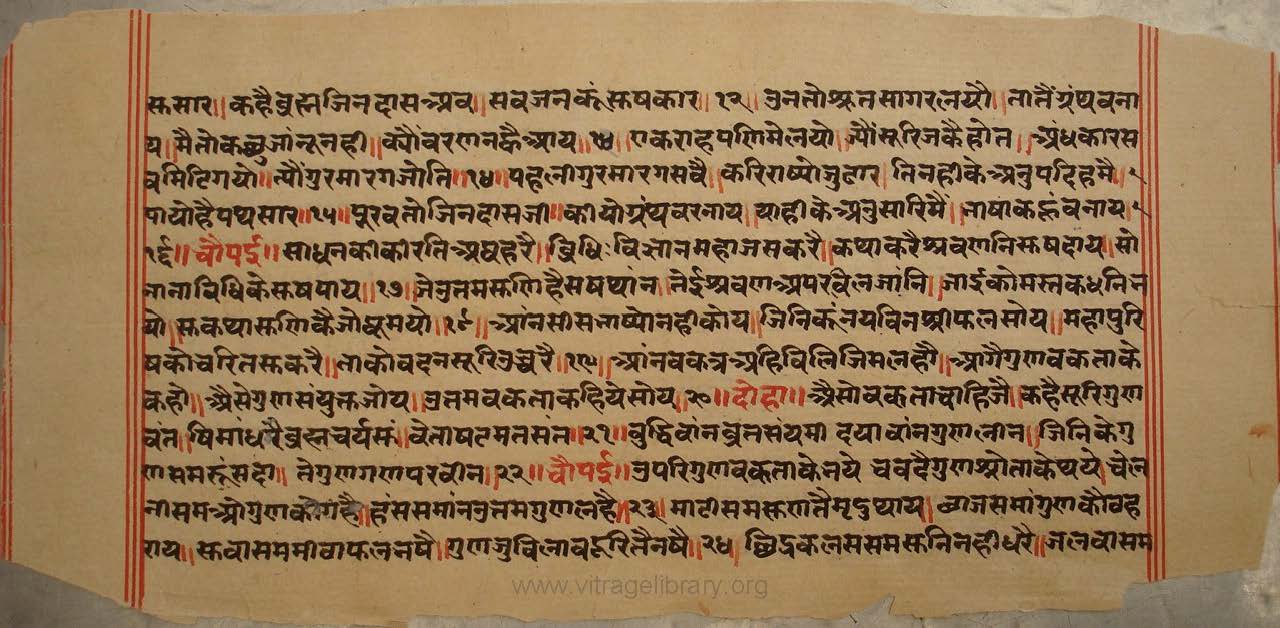 सुसार॥ कहै ब्रह्म जिनदास अब॥ सब जन कूं सुषकार॥ १२॥ उनतो श्रुतसागर लयौ॥ तातैं ग्रंथ बना
य॥ मैं तो कछु जांनू नही॥ क्यौं वरणन ह्वै आय॥ रूरि ज कै होत॥ अंधकार स
ब मिटि गयो॥ त्यौं गुर मारग जोति॥ १४॥ पहली गुर मारग सबै॥ करि राष्यो जु उदार॥ तिनही के अनुपद हि मै॥
पायो है पथ सार॥ १५॥ पूरब तो जिनदास जी॥ कीयो ग्रंथ वरनाय॥ याही के अनुसारि मैं॥ भाषा कहूं बनाय॥
१६॥ चौपई॥ साधुन की कीरति अघ हरै॥ बुधि विज्ञान महा जस करै॥ कथा करै श्रवणनि सुषदाय॥ सो
नाना विधि के सुष पाय॥ १७॥ जे उतम सुणि है सषथांन॥ तेई श्रवण अपर बैल जांनि॥ जाई को मस्तक धनि न
यो॥ सुकथा सुणि कै जो धूमयो॥ १८॥ आंन सीस भाष्यो नही कोय॥ जिनि कूं नय विन श्रीफल सोय॥ महापुरि
ष को चरित सु करै॥ ताको वदन सूरि उच्चरै॥ १९॥ आंन वकत्र अहि विलि जिम लहौ॥ आगै गुण वकता के
कहौ॥ अैसे गुण संयुक्त जोय॥ उतम वकता कहिये सोय॥ २०॥ दोहा॥ अैसो वकता चाहिजै॥ कहै सूरि गुण
वंत॥ षिमा धरै ब्रह्मचर्य सूं॥ वेता षटमत संत॥ २१॥ बुद्धिवांन व्रत संयमी॥ दयावांन गुण लीन॥ जिनि के गु
ण समरूं सदा॥ ते गुण गण परवीन॥ २२॥ चौपई॥ उपरि गुण वकता के लये॥ चवदै गुण श्रोता के थये॥ चेल
नी सम ओगुण को गहै॥ हंस समांन उतम गुण लहै॥ २३॥ माटी सम सुणतै मृदु थाय॥ समां गुण कौ वह
राय॥ सुवा सम मीठा फल लषै॥ गुण जु विलाव दूरि तैं नषै॥ २४॥ छिद्र कलस सम सुनि नही धरै॥ जलवा सम
www.vitragelibrary.org